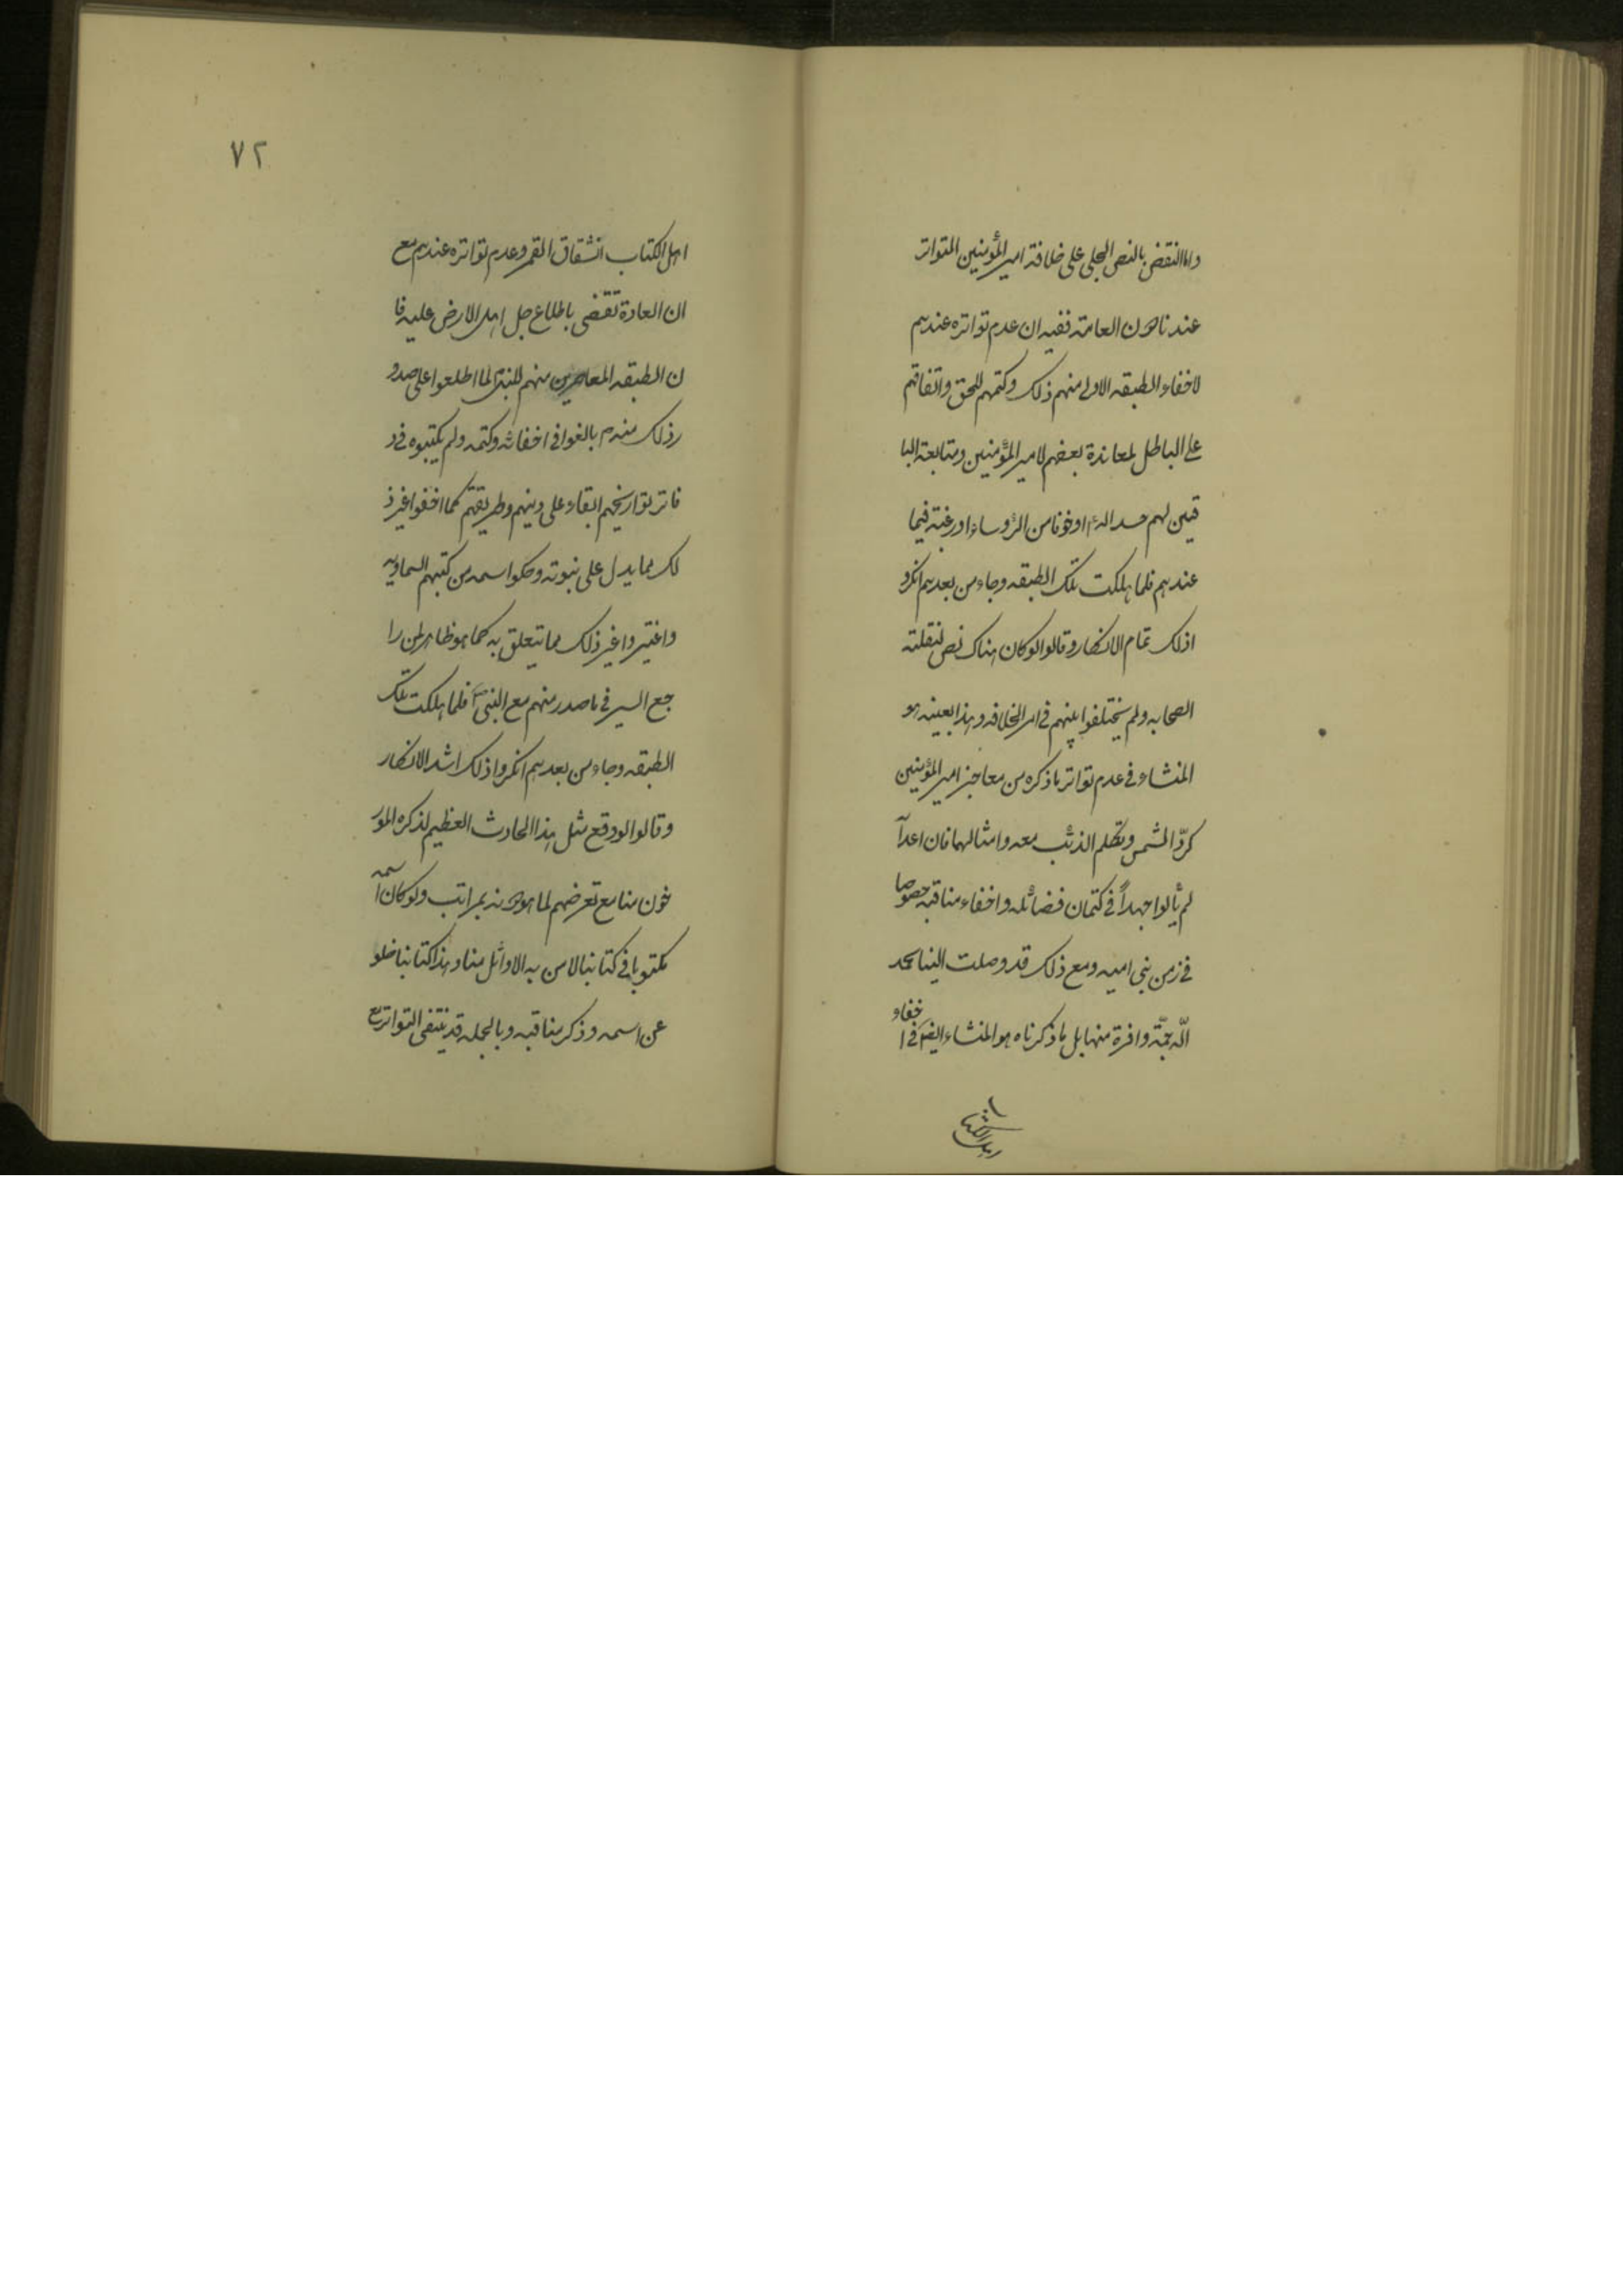 واما النقض بالنص الجلي على خلافة امير المؤمنين المتواتر
عندنا دون العامة ففيه ان عدم تواتره عندهم
لاخفاء الطبقه الاولى منهم ذلك وكتمهم للحق واتفاقهم
على الباطل لمعاندة بعضهم لامير المؤمنين ومتابعة البا
قين لهم حسدا له او خوفا من الرؤساء او رغبة فيما
عندهم فلما هلكت تلك الطبقه وجاء من بعدهم انكرو
اذلك تمام الانكار وقالوا لو كان هناك نص لنقلته
الصحابه ولم يختلفوا بينهم في امر الخلافه وهذا بعينه هو
المنشاء في عدم تواتر ما ذكره من معاجز امير المؤمنين
كردّ الشمس وتكلم الذئب معه وامثالهما فان اعدآ
لم يألوا جهداً في كتمان فضائله واخفاء مناقبه خصوصا
في زمن بني اميه ومع ذلك قد وصلت الينا بحمد
الله جمّة وافرة منها بل ما ذكرناه هو المنشاء ايضا في ا
خفاء
اهل الكتاب
٧٢
اهل الكتاب انشقاق القمر وعدم تواتره عندهم مع
ان العادة تقضى باطلاع جل اهل الارض عليه فا
ن الطبقه المعاصرين منهم للنبي لما اطلعوا على صدو
ر ذلك منه بالغوا في اخفائه وكتمه ولم يكتبوه في د
فاتر تواريخهم ابقاء على دينهم وطريقتهم كما اخفوا غير ذ
لك مما يدل على نبوته وحكوا اسمه من كتبهم السماويه
واغيروا غير ذلك مما يتعلق به كما هو ظاهر لمن را
جع السير في ما صدر منهم مع النبي فلما هلكت تلك
الطبقه وجاء من بعدهم انكروا ذلك اشد الانكار
وقالوا لو وقع مثل هذا الحادث العظيم لذكره المور
خون منا مع تعرضهم لما هو دونه بمراتب ولو كان اسمه
مكتوبا في كتابنا لامن به الاوائل منا وهذا كتابنا خلو
عن اسمه وذكر مناقبه وبالجمله قد ينتفى التواتر مع